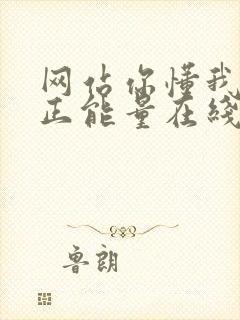 网站你懂我
正能量在线
鲁朗